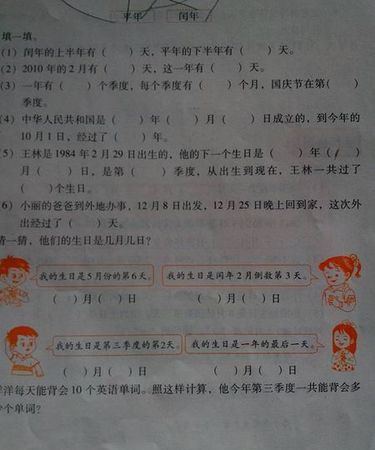 平年 闰年
填一填。
(1) 闰年的上半年有（ ）天，平年的下半年有（ ）天。
(2) 2010年的2月有（ ）天，这一年有（ ）天。
(3) 一年有（ ）个季度，每个季度有（ ）个月，国庆节在第（ ）
季度。
(4) 中华人民共和国是（ ）年（ ）月（ ）日成立的，到今年的
10月1日，经过了（ ）年。
5) 王林是1984年2月29日出生的，他的下一个生日是（ ）年（ ）
月（ ）日，是第（ ）季度，从出生到现在，王林一共过了
（ ）个生日。
6) 小丽的爸爸到外地办事，12月8日出发，12月25日晚上回到家，这次外
出经过了（ ）天。
猜一猜，他们的生日是几月几日？
我的生日是5月份的第6天。 我的生日是闰年2月倒数第3天。
（ ）月（ ）日 （ ）月（ ）日
我的生日是第三季度的第2天。 我的生日是一年的最后一天。
（ ）月（ ）日 （ ）月（ ）日
洋每天能背会10个英语单词。照这样计算，他今年第三季度一共能背会多
个单词？